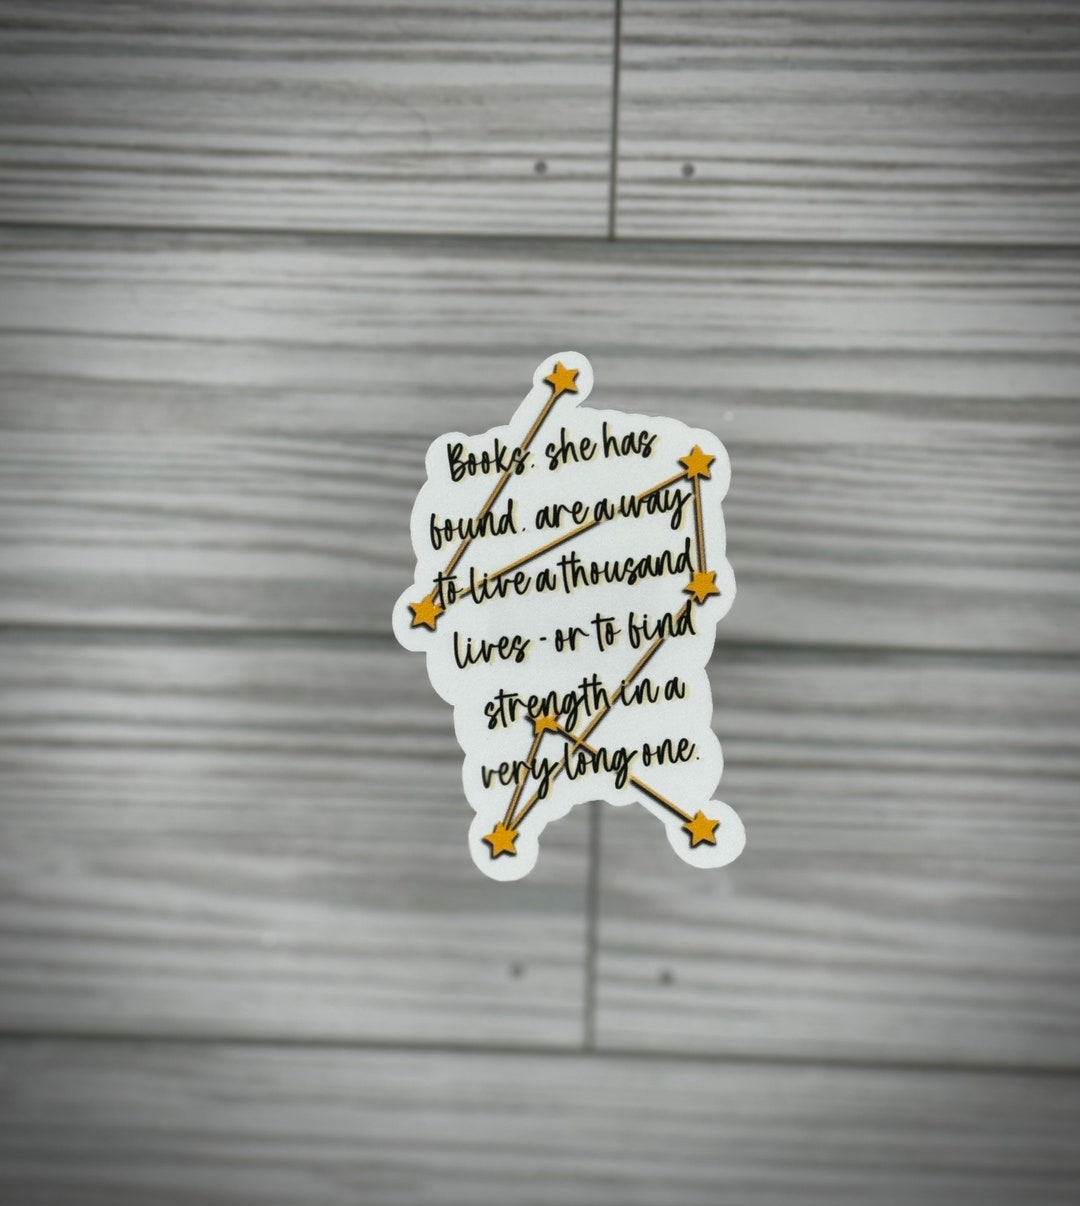 Books. she has
found. are a way
to live a thousand
lives - or to find
strength in a
very long one.